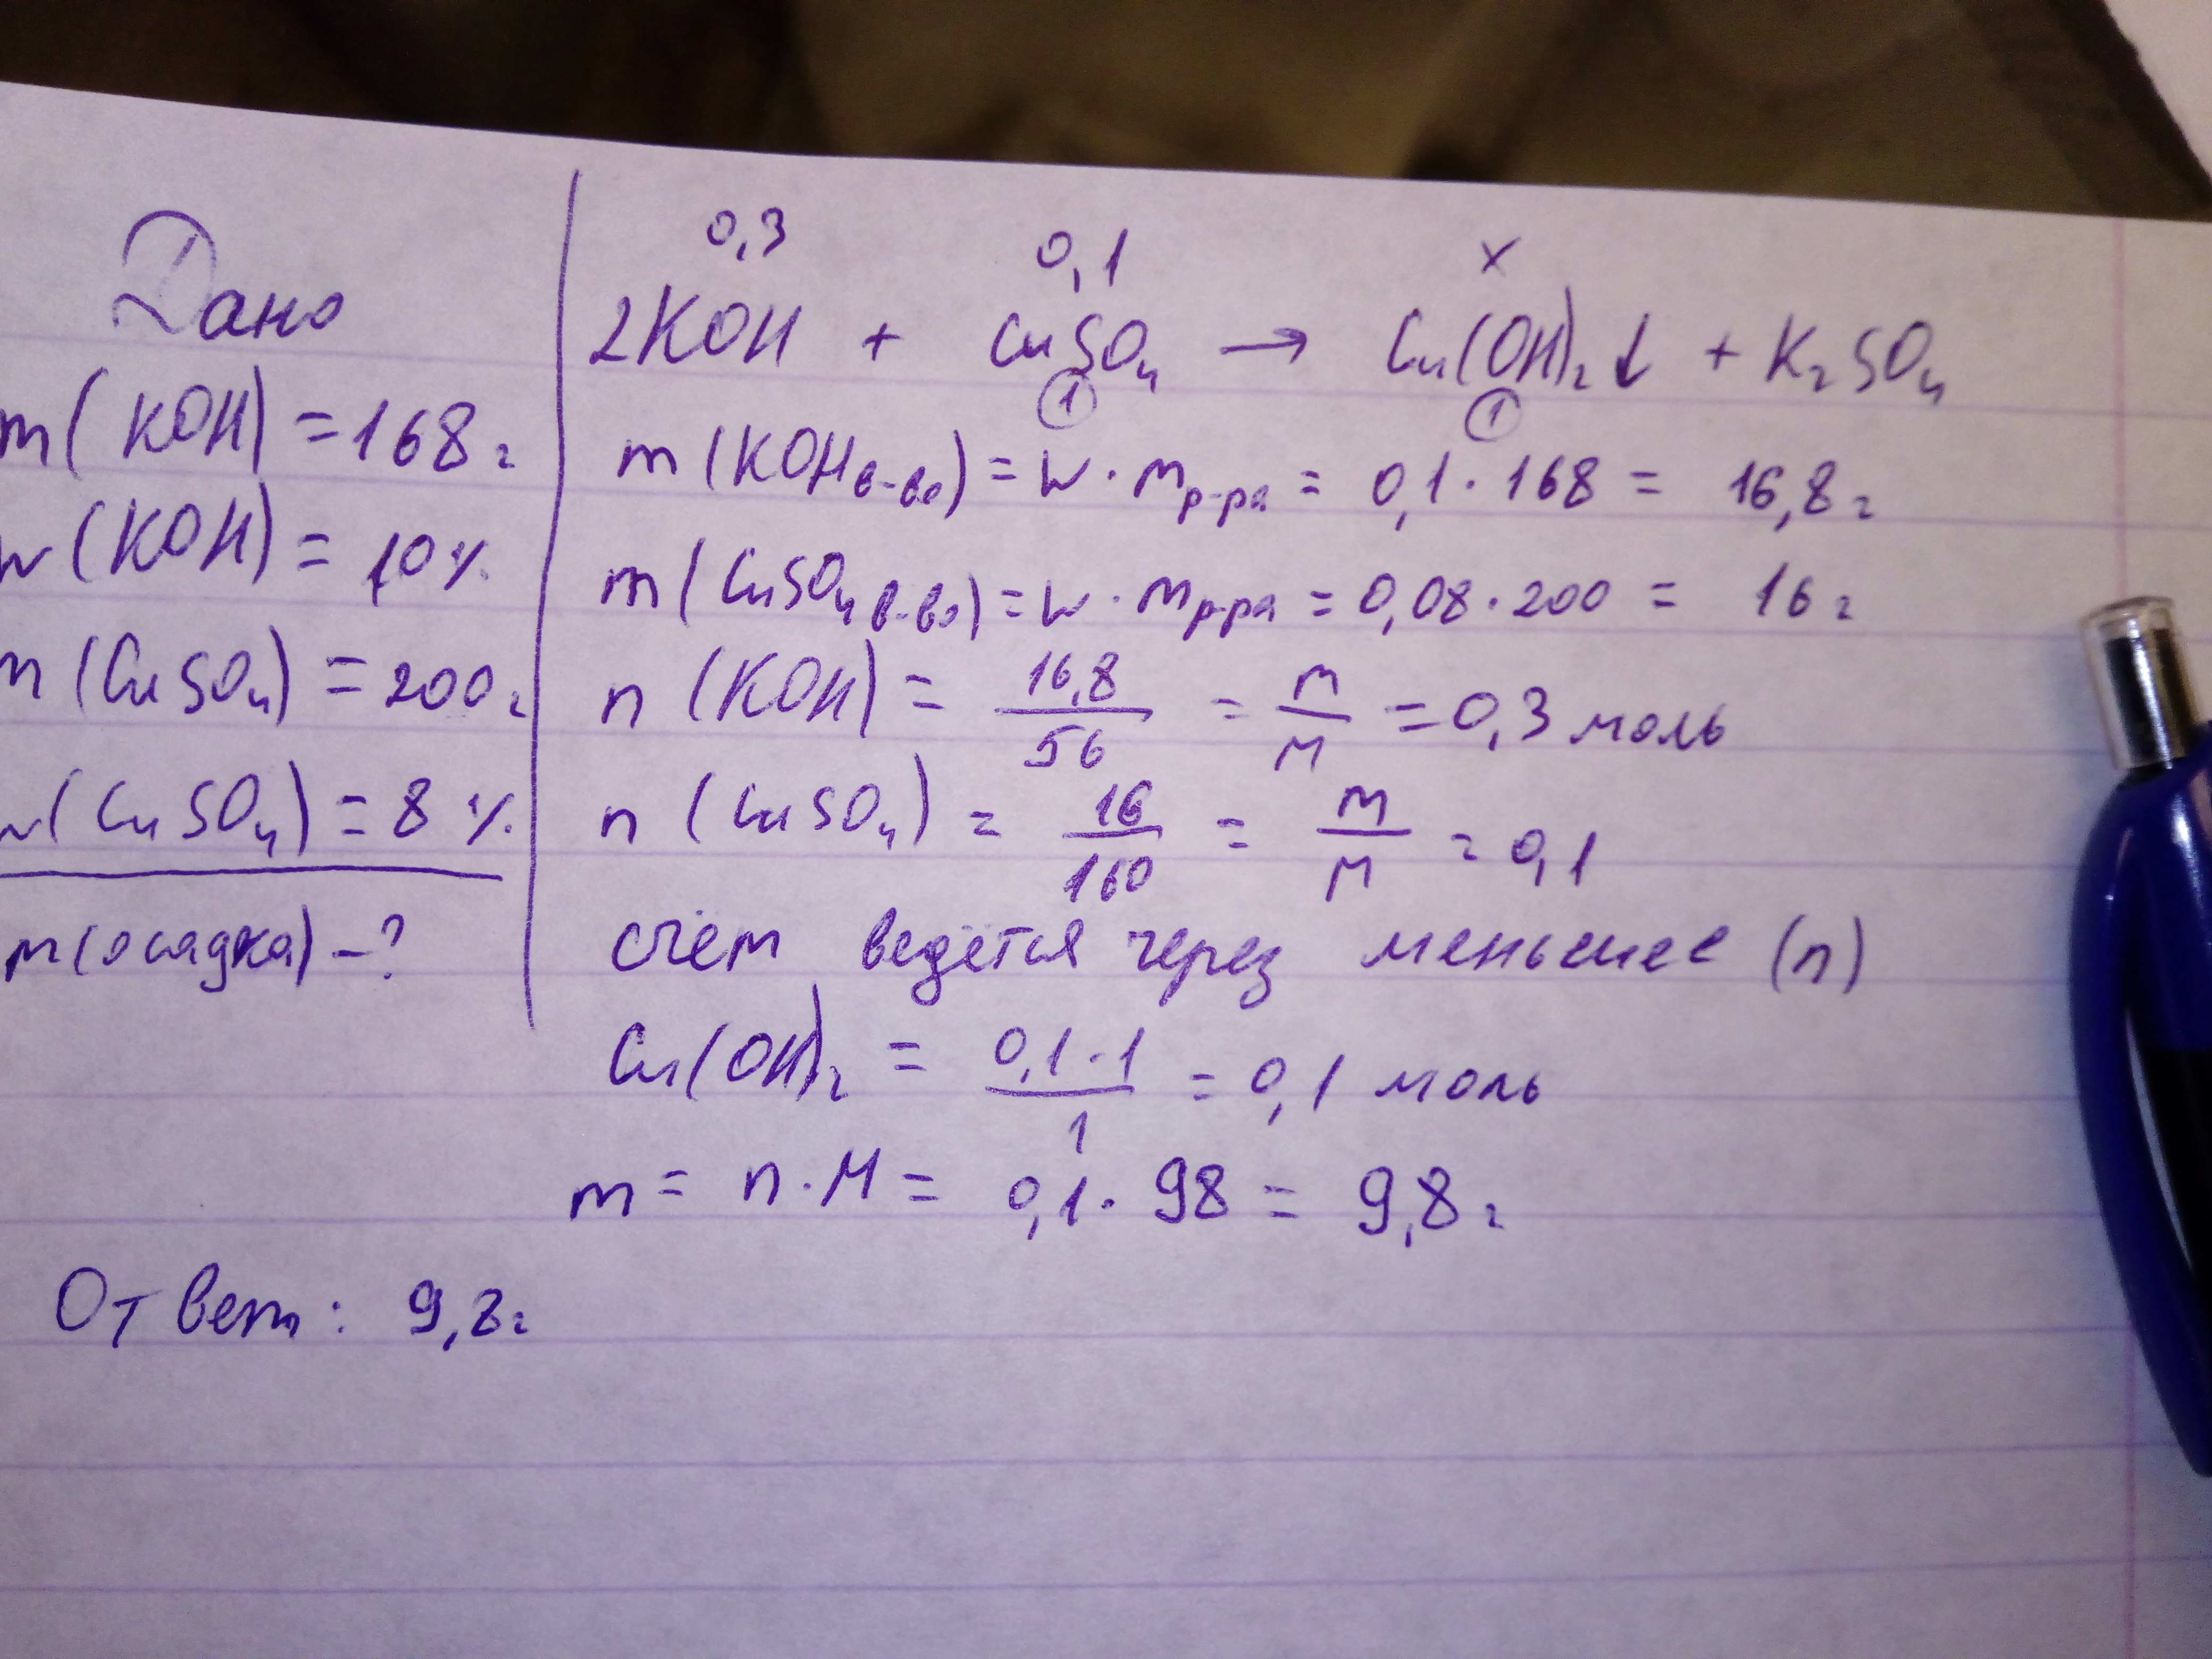 Дано
m(KOH) = 168 г
w(KOH) = 10%
m(CuSO₄) = 200 г
w(CuSO₄) = 8%
m(осадка) - ?
0,3 0,1 x
2KOH + CuSO₄ → Cu(OH)₂↓ + K₂SO₄
1 1
m(KOH в-во) = w · m р-ра = 0,1 · 168 = 16,8 г
m(CuSO₄ в-во) = w · m р-ра = 0,08 · 200 = 16 г
n(KOH) = 16,8/56 = m/M = 0,3 моль
n(CuSO₄) = 16/160 = m/M = 0,1
счём ведётся через меньшее (n)
Cu(OH)₂ = 0,1·1/1 = 0,1 моль
m = n · M = 0,1 · 98 = 9,8 г
Ответ: 9,8 г